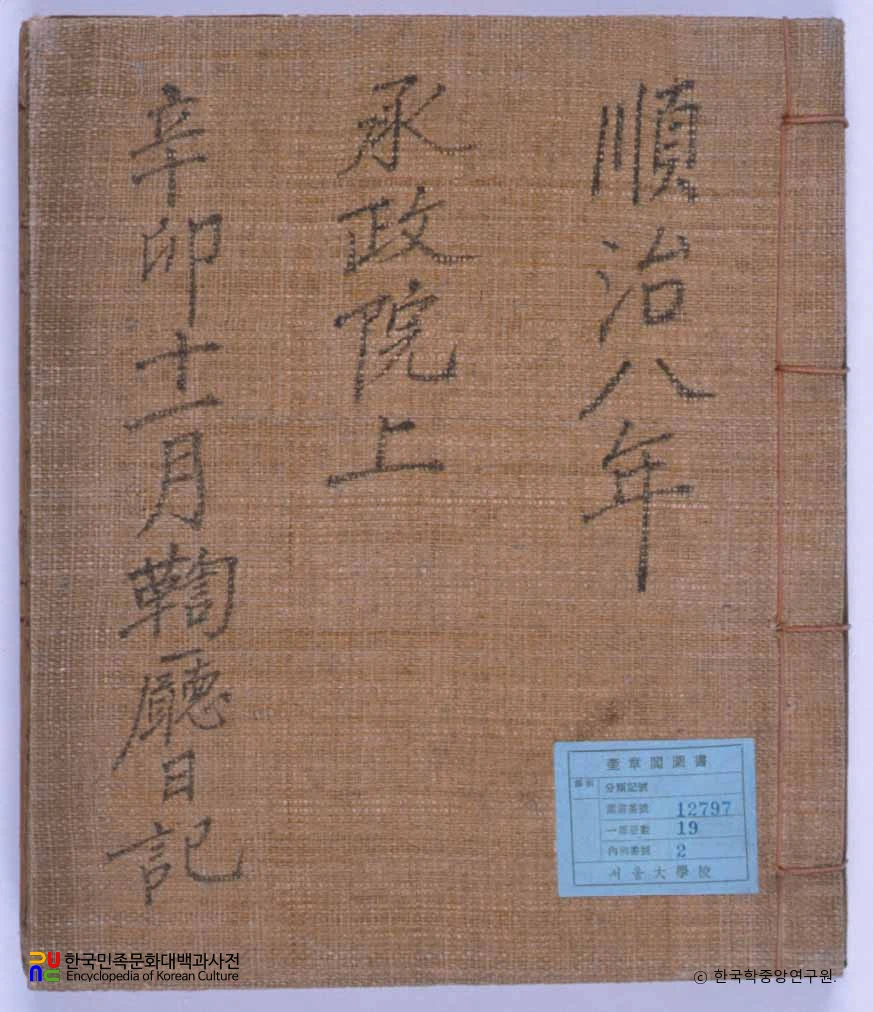 順治八年
承政院上
辛卯十一月鞫廳日記
奎章閣圖書
分類記號
圖書番號 12797
一部冊數 19
內同番號 2
서울大學校
한국민족문화대백과사전
Encyclopedia of Korean Culture
ⓒ 한국학중앙연구원.